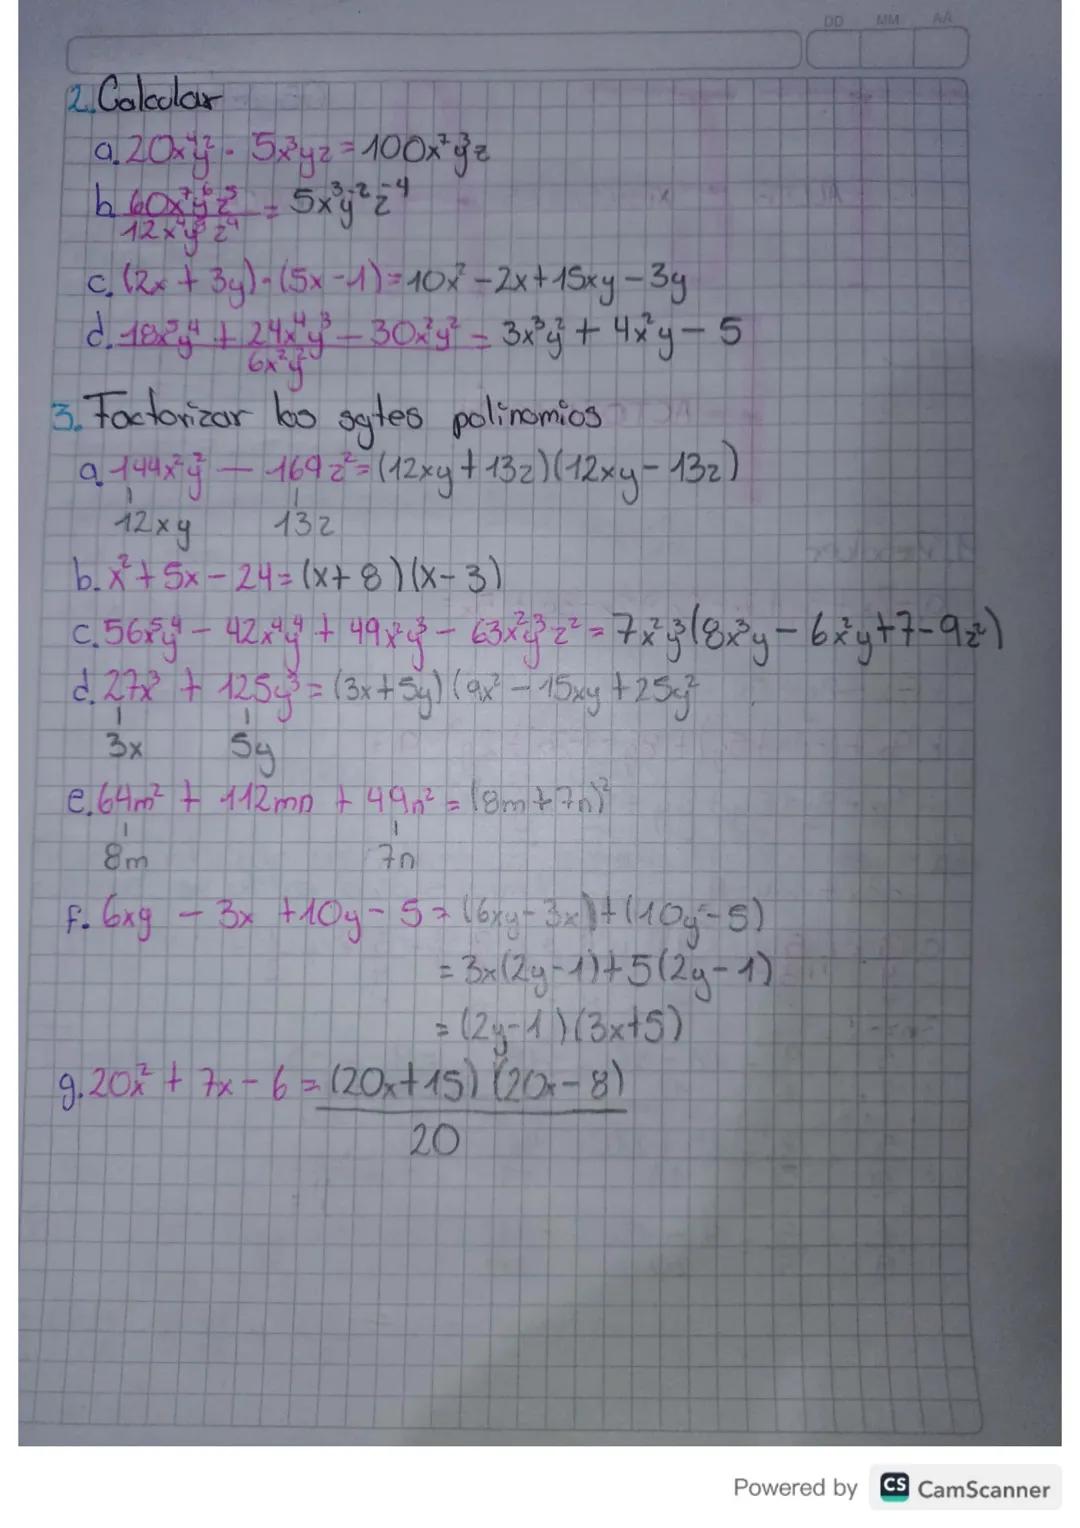 DD MM AA
2. Calcular
a. 20x⁴y² · 5x³yz = 100x⁷y³z
b. 60x⁷y⁶z⁵ = 5x³y⁻²z⁻⁴
12x⁴y⁸z⁴
c. (2x + 3y) · (5x - 1) = 10x² - 2x + 15xy - 3y
d. 18x⁵y⁴ + 24x⁴y³ - 30x²y² = 3x³y² + 4x²y - 5
6x²y²
3. Factorizar los sgtes polinomios
a. 144x²y² - 169z² = (12xy + 13z)(12xy - 13z)
12xy 13z
b. x² + 5x - 24 = (x + 8)(x - 3)
c. 56x⁵y⁴ - 42x⁴y⁴ + 49x²y³ - 63x²y³z² = 7x²y³(8x³y - 6x²y + 7 - 9z²)
d. 27x³ + 125y³ = (3x + 5y)(9x² - 15xy + 25y²
3x 5y
e. 64m² + 112mn + 49n² = (8m + 7n)²
8m 7n
f. 6xy - 3x + 10y - 5 = (6xy - 3x) + (10y - 5)
= 3x(2y - 1) + 5(2y - 1)
= (2y - 1)(3x + 5)
g. 20x² + 7x - 6 = (20x + 15)(20x - 8)
20
Powered by CS CamScanner